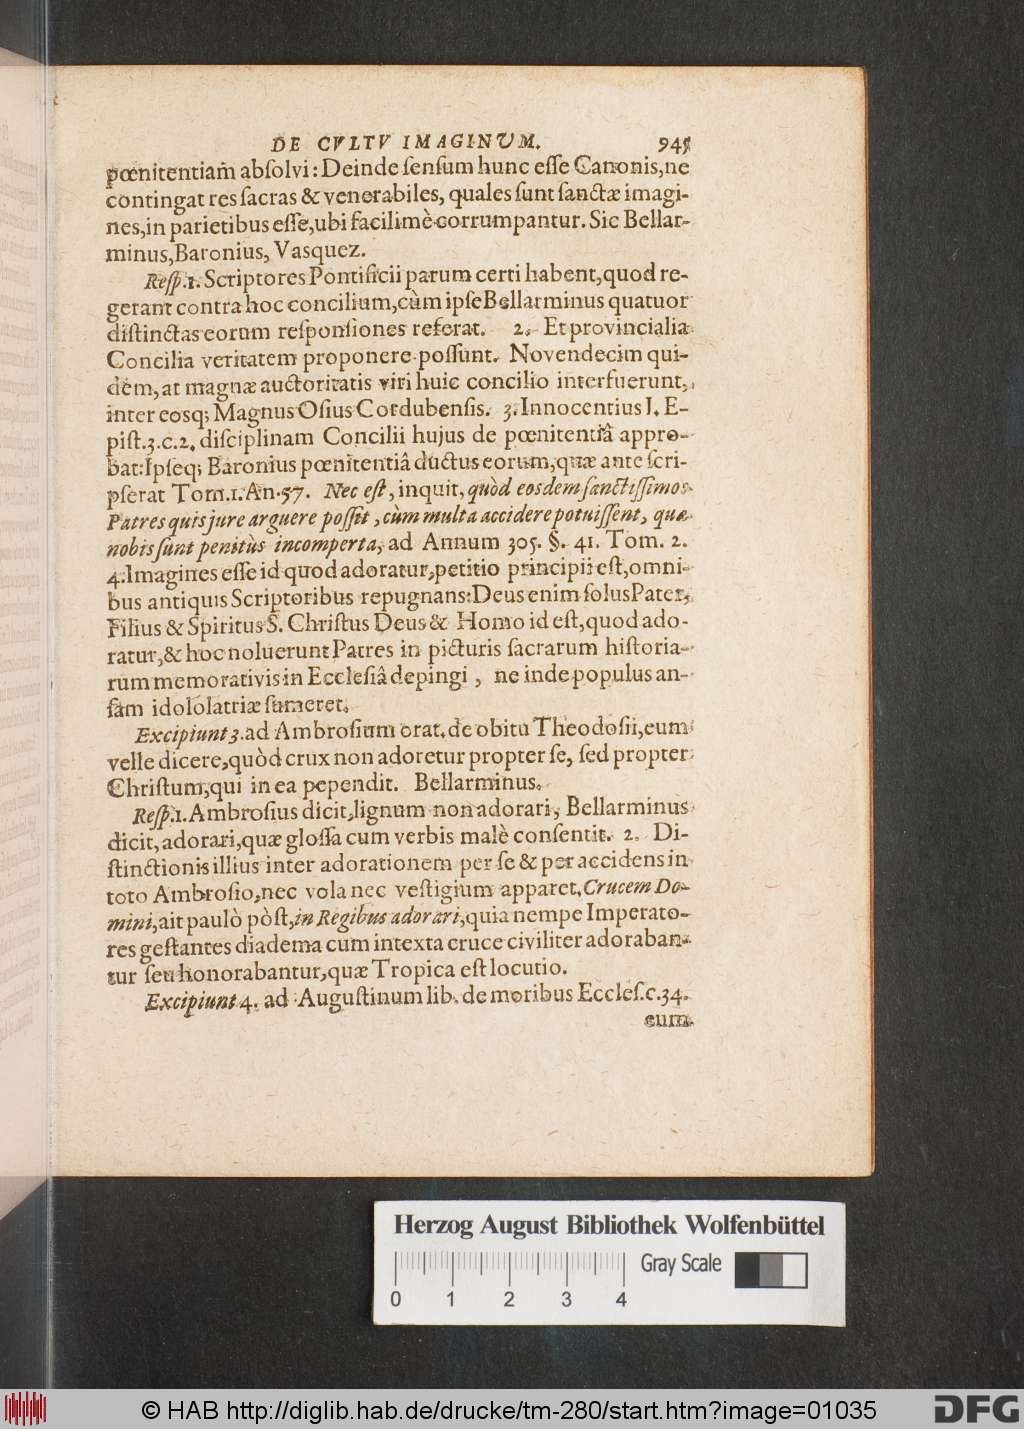 DE CVLTV IMAGINUM. 945
pœnitentiam absolvi: Deinde sensum hunc esse Canonis, ne
contingat res sacras & venerabiles, quales sunt sanctæ imagi-
nes, in parietibus esse, ubi facilimè corrumpantur. Sic Bellar-
minus, Baronius, Vasquez.
Resp. 1. Scriptores Pontificii parum certi habent, quod re-
gerant contra hoc concilium, cùm ipse Bellarminus quatuor
distinctas eorum responsiones referat. 2. Et provincialia
Concilia veritatem proponere possunt. Novendecim qui-
dem, at magnæ auctoritatis viri huic concilio interfuerunt,
inter eosq; Magnus Osius Cordubensis. 3. Innocentius I. E-
pist. 3. c. 2. disciplinam Concilii hujus de pœnitentiâ appro-
bat: Ipseq; Baronius pœnitentiâ ductus eorum, quæ ante scri-
pserat Tom. 1. An. 57. Nec est, inquit, quòd eosdem sanctissimos
Patres quis jure arguere possit, cùm multa accidere potuissent, quæ
nobis sunt penitùs incomperta, ad Annum 305. §. 41. Tom. 2.
4. Imagines esse id quod adoratur, petitio principii est, omni-
bus antiquis Scriptoribus repugnans: Deus enim solus Pater,
Filius & Spiritus S. Christus Deus & Homo id est, quod ado-
ratur, & hoc noluerunt Patres in picturis sacrarum historia-
rum memorativis in Ecclesiâ depingi, ne inde populus an-
sam idololatriæ sumeret.
Excipiunt 3. ad Ambrosium orat. de obitu Theodosii, eum
velle dicere, quòd crux non adoretur propter se, sed propter
Christum, qui in ea pependit. Bellarminus.
Resp. 1. Ambrosius dicit, lignum non adorari, Bellarminus
dicit, adorari, quæ glossa cum verbis malè consentit. 2. Di-
stinctionis illius inter adorationem per se & per accidens in
toto Ambrosio, nec vola nec vestigium apparet. Crucem Do-
mini, ait paulò pòst, in Regibus adorari, quia nempe Imperato-
res gestantes diadema cum intexta cruce civiliter adoraban-
tur seu honorabantur, quæ Tropica est locutio.
Excipiunt 4. ad Augustinum lib. de moribus Eccles. c. 34.
eum
Herzog August Bibliothek Wolfenbüttel
Gray Scale
0 1 2 3 4
© HAB http://diglib.hab.de/drucke/tm-280/start.htm?image=01035
DFG